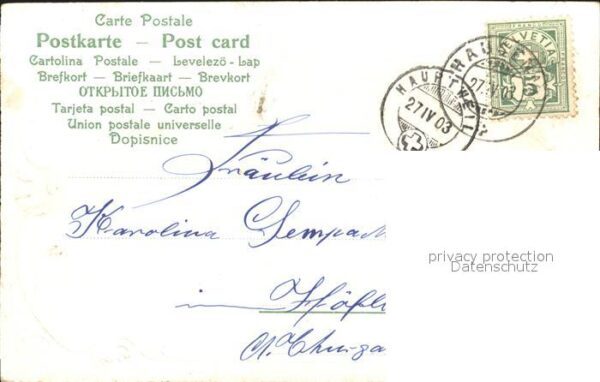 Carte Postale
Postkarte – Post card
Cartolina Postale – Levelező-Lap
Brefkort – Briefkaart – Brevkort
ОТКРЫТОЕ ПИСЬМО
Tarjeta postal – Carto postal
Union postale universelle
Dopisnice
HELVETIA
5
27.IV.03
HAUPTWEIL
27 IV 03
Fräulein
Karolina Sempach
im
Ct. Thurga
privacy protection
Datenschutz